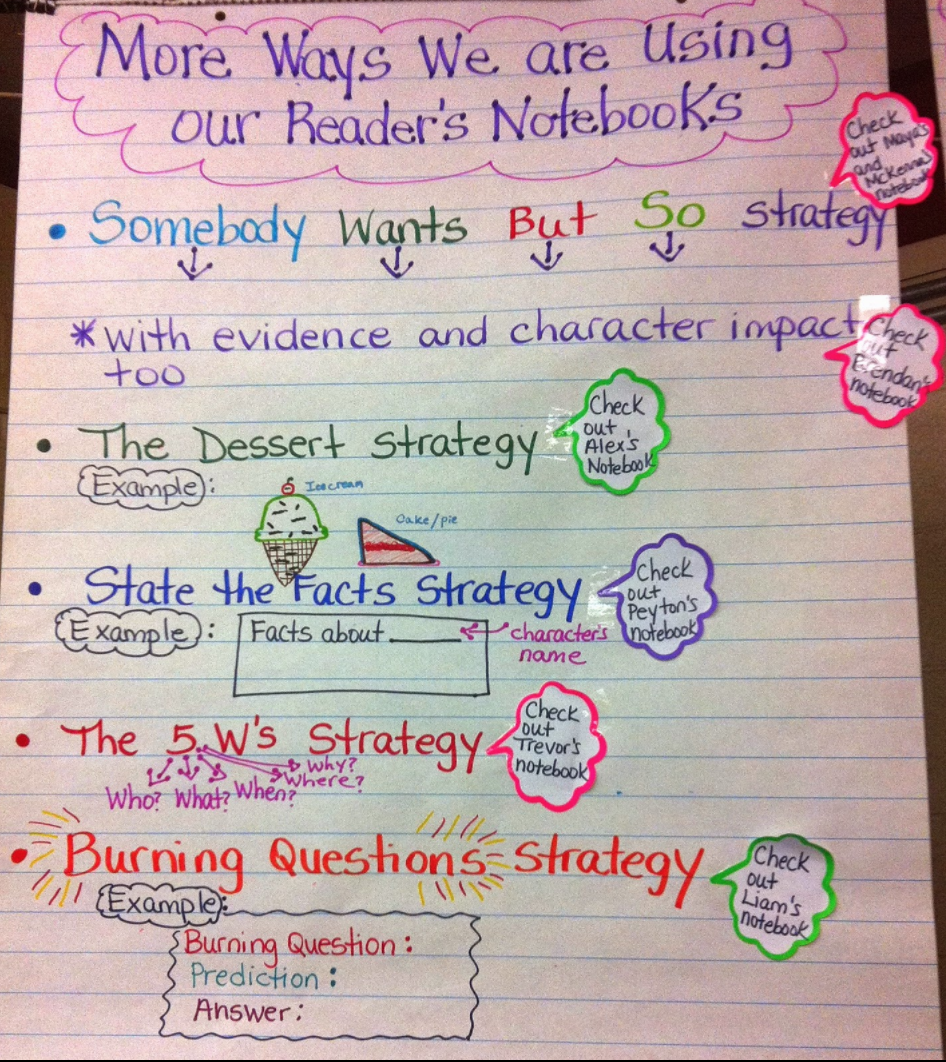 More Ways We are Using
our Reader's Notebooks
Check
out Maya's
and
McKenna's
notebook
• Somebody Wants But So strategy
* with evidence and character impact
too
Check
out
Brendan's
notebook
• The Dessert Strategy
Check
out
Alex's
Notebook
Example:
Ice cream
Cake/pie
• State the Facts Strategy
Check
out
Peyton's
notebook
Example:
Facts about ______
character's
name
• The 5 W's Strategy
Check
out
Trevor's
notebook
Who? What? When? Where? Why?
• Burning Questions Strategy
Check
out
Liam's
notebook
Example:
Burning Question:
Prediction:
Answer: